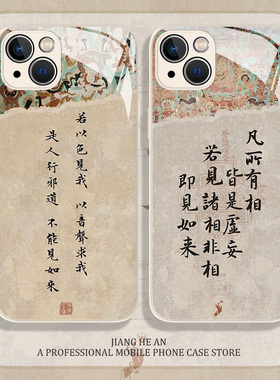 若以色見我 以音聲求我
是人行邪道 不能見如來
凡所有相
皆是虛妄
若見諸相非相
即見如来
JIANG HE AN
A PROFESSIONAL MOBILE PHONE CASE STORE